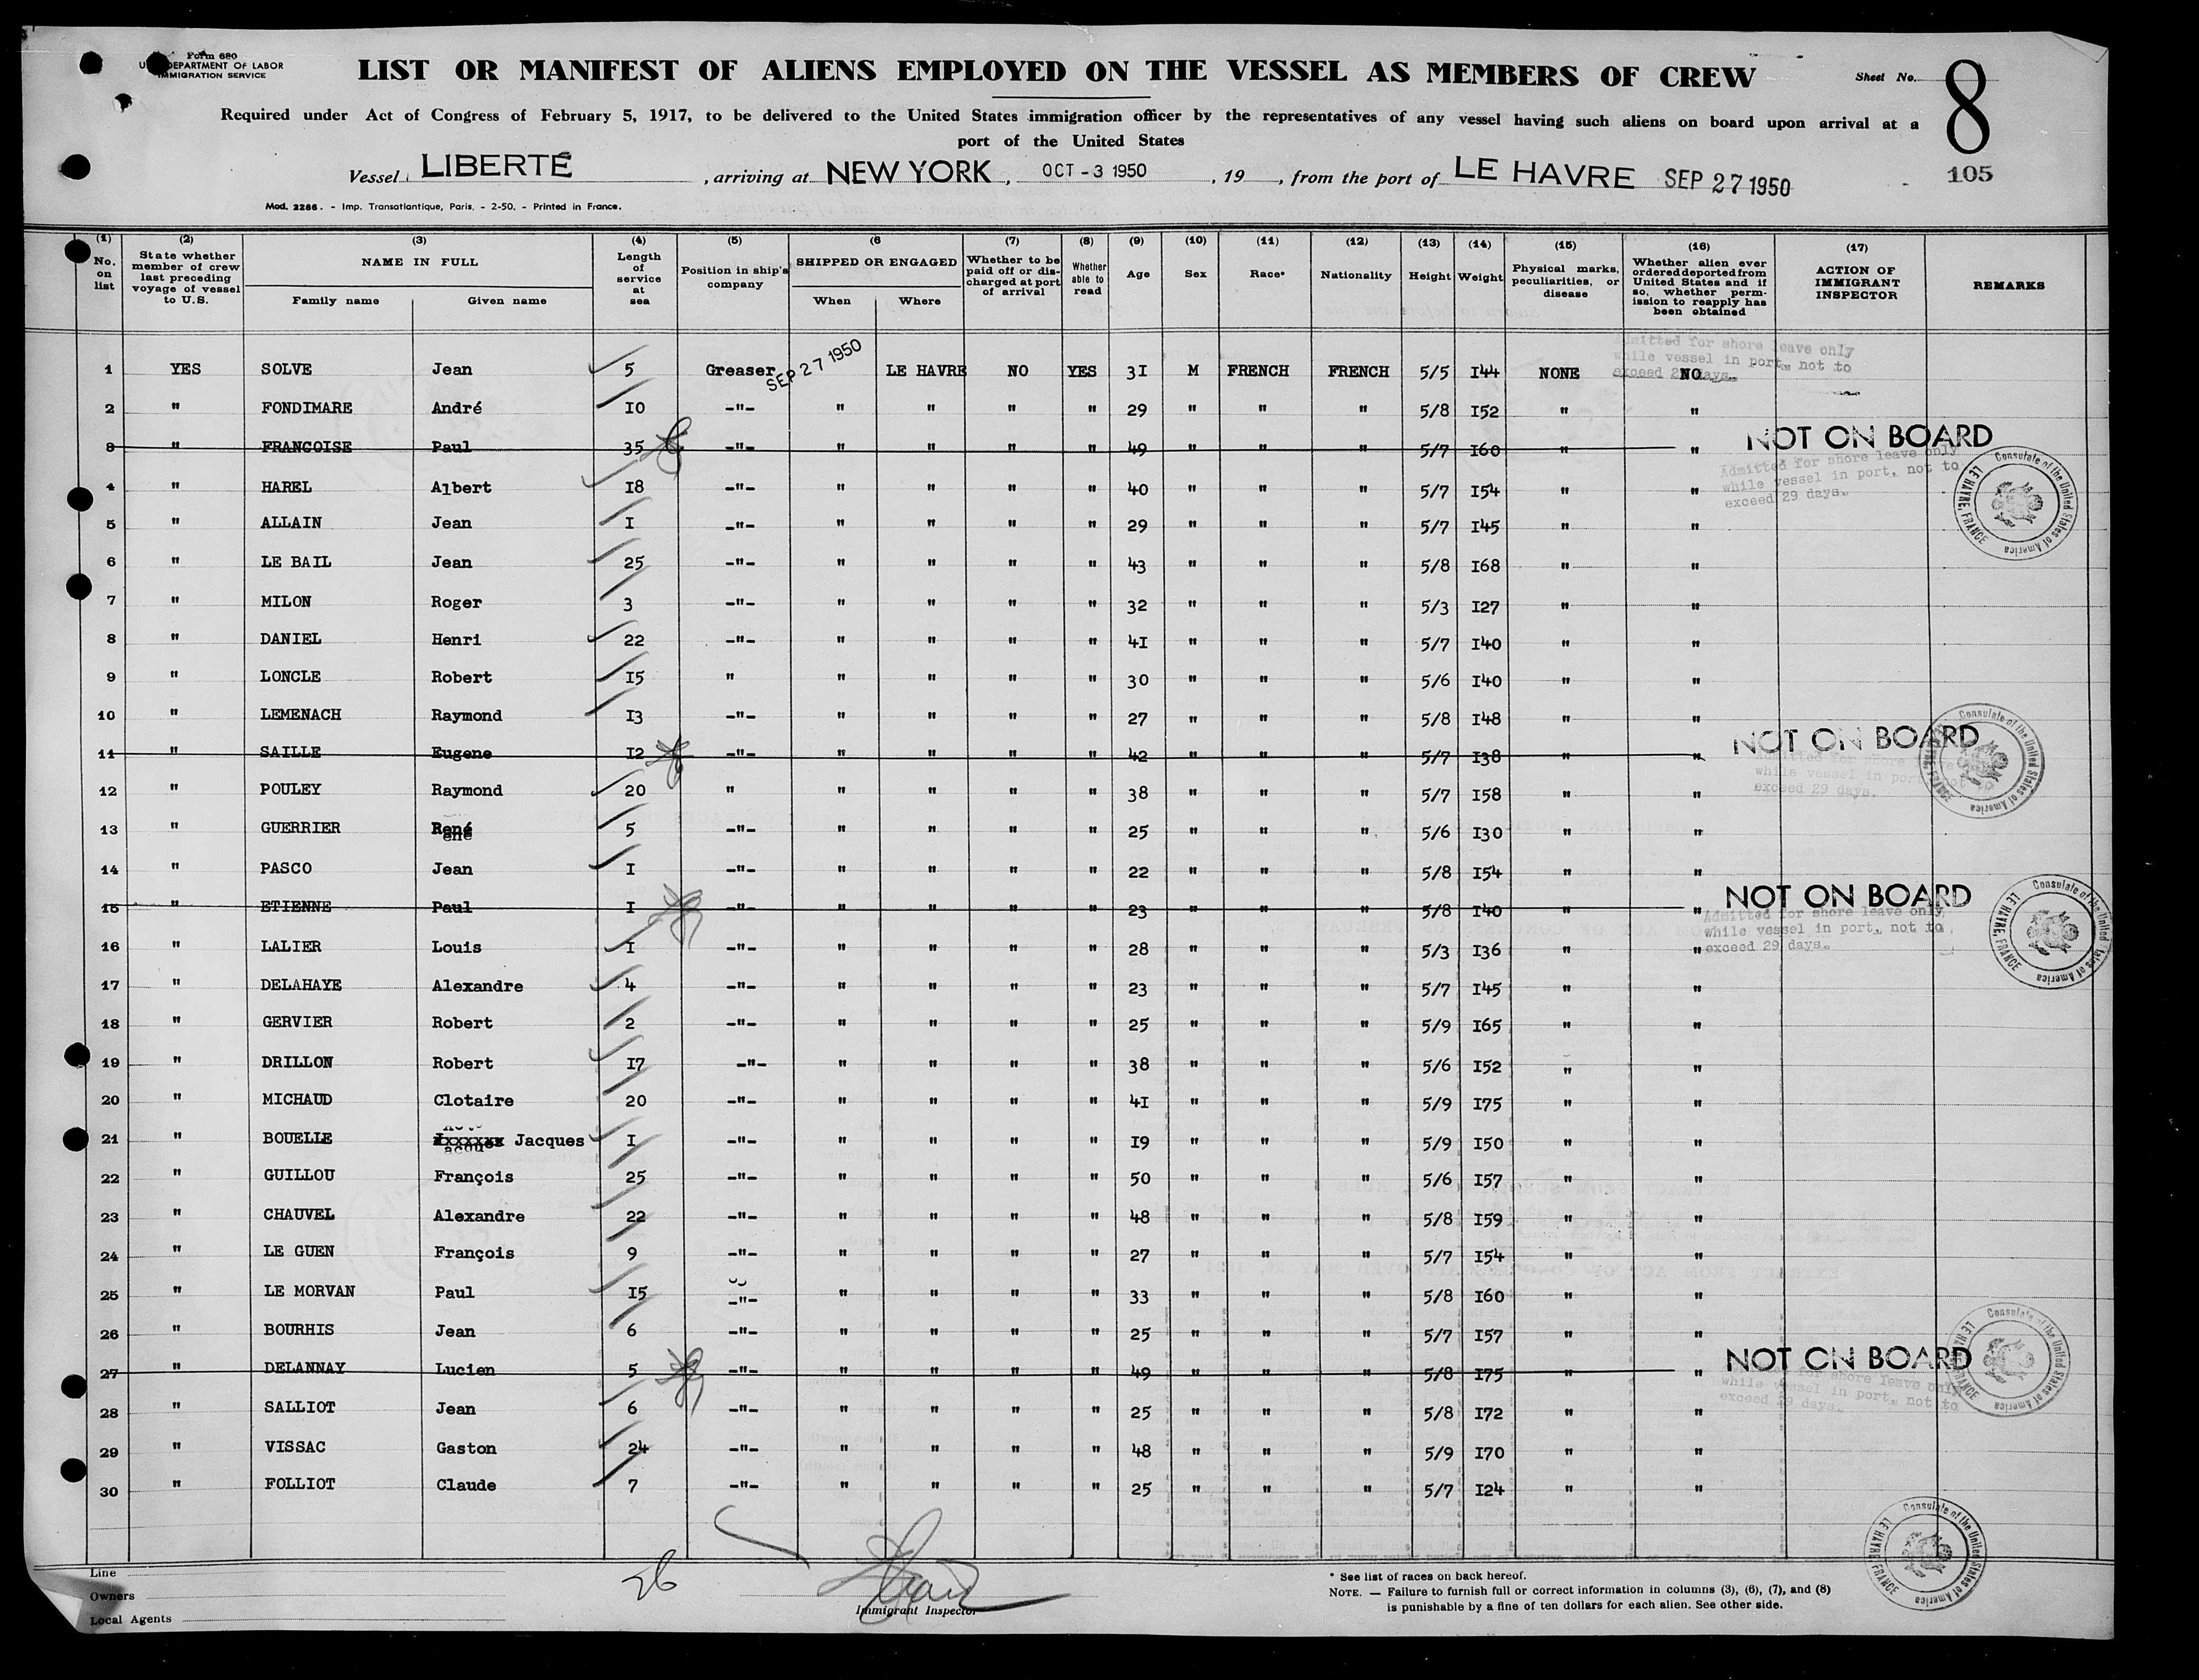 Form 680
U. S. DEPARTMENT OF LABOR
IMMIGRATION SERVICE
LIST OR MANIFEST OF ALIENS EMPLOYED ON THE VESSEL AS MEMBERS OF CREW
Sheet No. 8
Required under Act of Congress of February 5, 1917, to be delivered to the United States immigration officer by the representatives of any vessel having such aliens on board upon arrival at a
port of the United States
105
Vessel LIBERTÉ, arriving at NEW YORK, OCT - 3 1950, 19, from the port of LE HAVRE SEP 27 1950
Mod. 2286. - Imp. Transatlantique, Paris. - 2-50. - Printed in France.
(1) No. on list (2) State whether member of crew last preceding voyage of vessel to U.S. (3) NAME IN FULL Family name Given name (4) Length of service at sea (5) Position in ship's company (6 SHIPPED OR ENGAGED When Where (7) Whether to be paid off or discharged at port of arrival (8) Whether able to read (9) Age (10) Sex (11) Race* (12) Nationality (13) Height (14) Weight (15) Physical marks, peculiarities, or disease (16) Whether alien ever ordered deported from United States and if so, whether permission to reapply has been obtained (17) ACTION OF IMMIGRANT INSPECTOR REMARKS
1 YES SOLVE Jean 5 Greaser SEP 27 1950 LE HAVRE NO YES 31 M FRENCH FRENCH 5/5 144 NONE NO Admitted for shore leave only while vessel in port, not to exceed 29 days.
2 " FONDIMARE André 10 -"- " " " " 29 " " " 5/8 152 " "
3 " FRANCOISE Paul 35 -"- " " " " 49 " " " 5/7 160 " " NOT ON BOARD
4 " HAREL Albert 18 -"- " " " " 40 " " " 5/7 154 " " Admitted for shore leave only while vessel in port, not to exceed 29 days.
5 " ALLAIN Jean I -"- " " " " 29 " " " 5/7 145 " "
Consulate of the United States of America LE HAVRE, FRANCE
6 " LE BAIL Jean 25 -"- " " " " 43 " " " 5/8 168 " "
7 " MILON Roger 3 -"- " " " " 32 " " " 5/3 127 " "
8 " DANIEL Henri 22 -"- " " " " 41 " " " 5/7 140 " "
9 " LONCLE Robert 15 " " " " " 30 " " " 5/6 140 " "
10 " LEMENACH Raymond 13 -"- " " " " 27 " " " 5/8 148 " "
11 " SAILLE Eugene 12 -"- " " " " 42 " " " 5/7 138 " " NOT ON BOARD
Consulate of the United States of America LE HAVRE, FRANCE
12 " POULEY Raymond 20 " " " " " 38 " " " 5/7 158 " " Admitted for shore leave only while vessel in port, not to exceed 29 days.
13 " GUERRIER René 5 -"- " " " " 25 " " " 5/6 130 " "
14 " PASCO Jean I -"- " " " " 22 " " " 5/8 154 " "
15 " ETIENNE Paul I -"- " " " " 23 " " " 5/8 140 " " NOT ON BOARD
16 " LALIER Louis I -"- " " " " 28 " " " 5/3 136 " " Admitted for shore leave only while vessel in port, not to exceed 29 days.
Consulate of the United States of America LE HAVRE, FRANCE
17 " DELAHAYE Alexandre 4 -"- " " " " 23 " " " 5/7 145 " "
18 " GERVIER Robert 2 -"- " " " " 25 " " " 5/9 165 " "
19 " DRILLON Robert 17 -"- " " " " 38 " " " 5/6 152 " "
20 " MICHAUD Clotaire 20 -"- " " " " 41 " " " 5/9 175 " "
21 " BOUELLE Jacques I -"- " " " " 19 " " " 5/9 150 " "
22 " GUILLOU François 25 -"- " " " " 50 " " " 5/6 157 " "
23 " CHAUVEL Alexandre 22 -"- " " " " 48 " " " 5/8 159 " "
24 " LE GUEN François 9 -"- " " " " 27 " " " 5/7 154 " "
25 " LE MORVAN Paul 15 -"- " " " " 33 " " " 5/8 160 " "
26 " BOURHIS Jean 6 -"- " " " " 25 " " " 5/7 157 " "
27 " DELANNAY Lucien 5 -"- " " " " 49 " " " 5/8 175 " " NOT ON BOARD
Consulate of the United States of America LE HAVRE, FRANCE
28 " SALLIOT Jean 6 -"- " " " " 25 " " " 5/8 172 " " Admitted for shore leave only while vessel in port, not to exceed 29 days.
29 " VISSAC Gaston 24 -"- " " " " 48 " " " 5/9 170 " "
30 " FOLLIOT Claude 7 -"- " " " " 25 " " " 5/7 124 " "
Consulate of the United States of America LE HAVRE, FRANCE
Line
Owners
Local Agents
26
Immigrant Inspector
* See list of races on back hereof.
NOTE. — Failure to furnish full or correct information in columns (3), (6), (7), and (8)
is punishable by a fine of ten dollars for each alien. See other side.